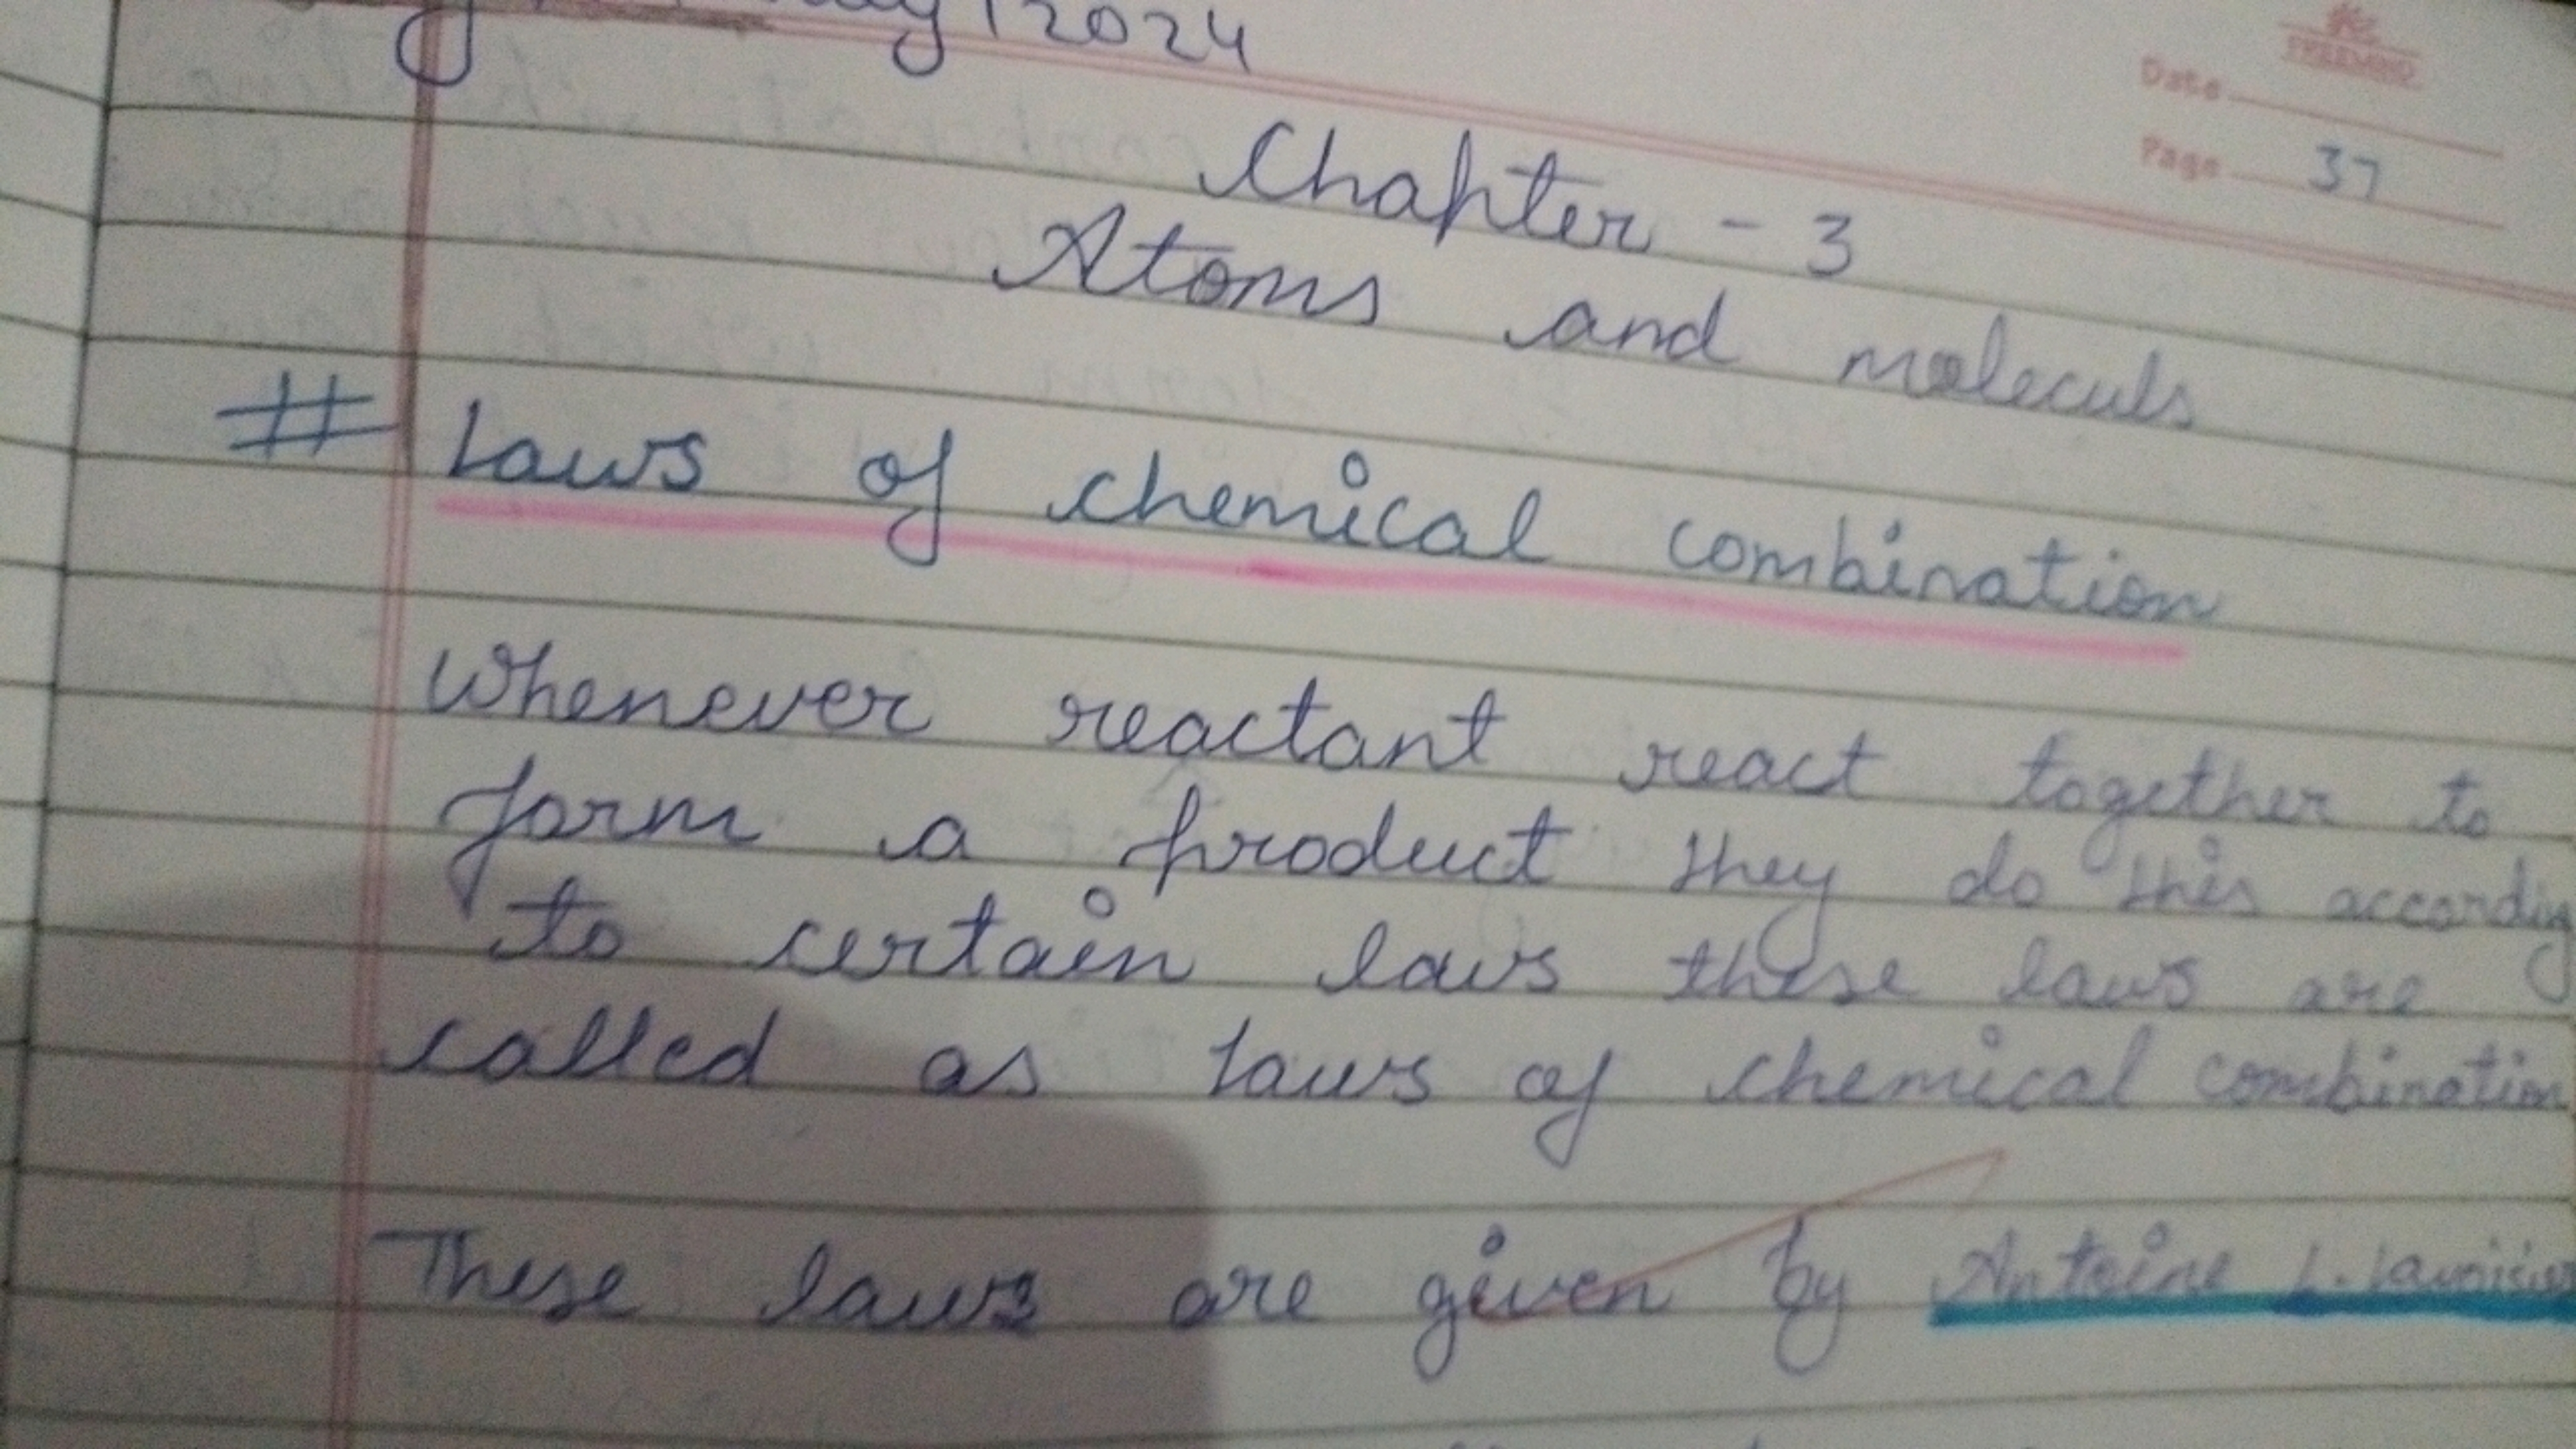 2024
FREEMIND
Date
Page 37
Chapter - 3
Atoms and moleculs
# Laws of chemical combination
Whenever reactant react together to
form a product they do this according
to certain laws these laws are
called as laws of chemical combination
These laws are given by Antoine L. Lavoisier